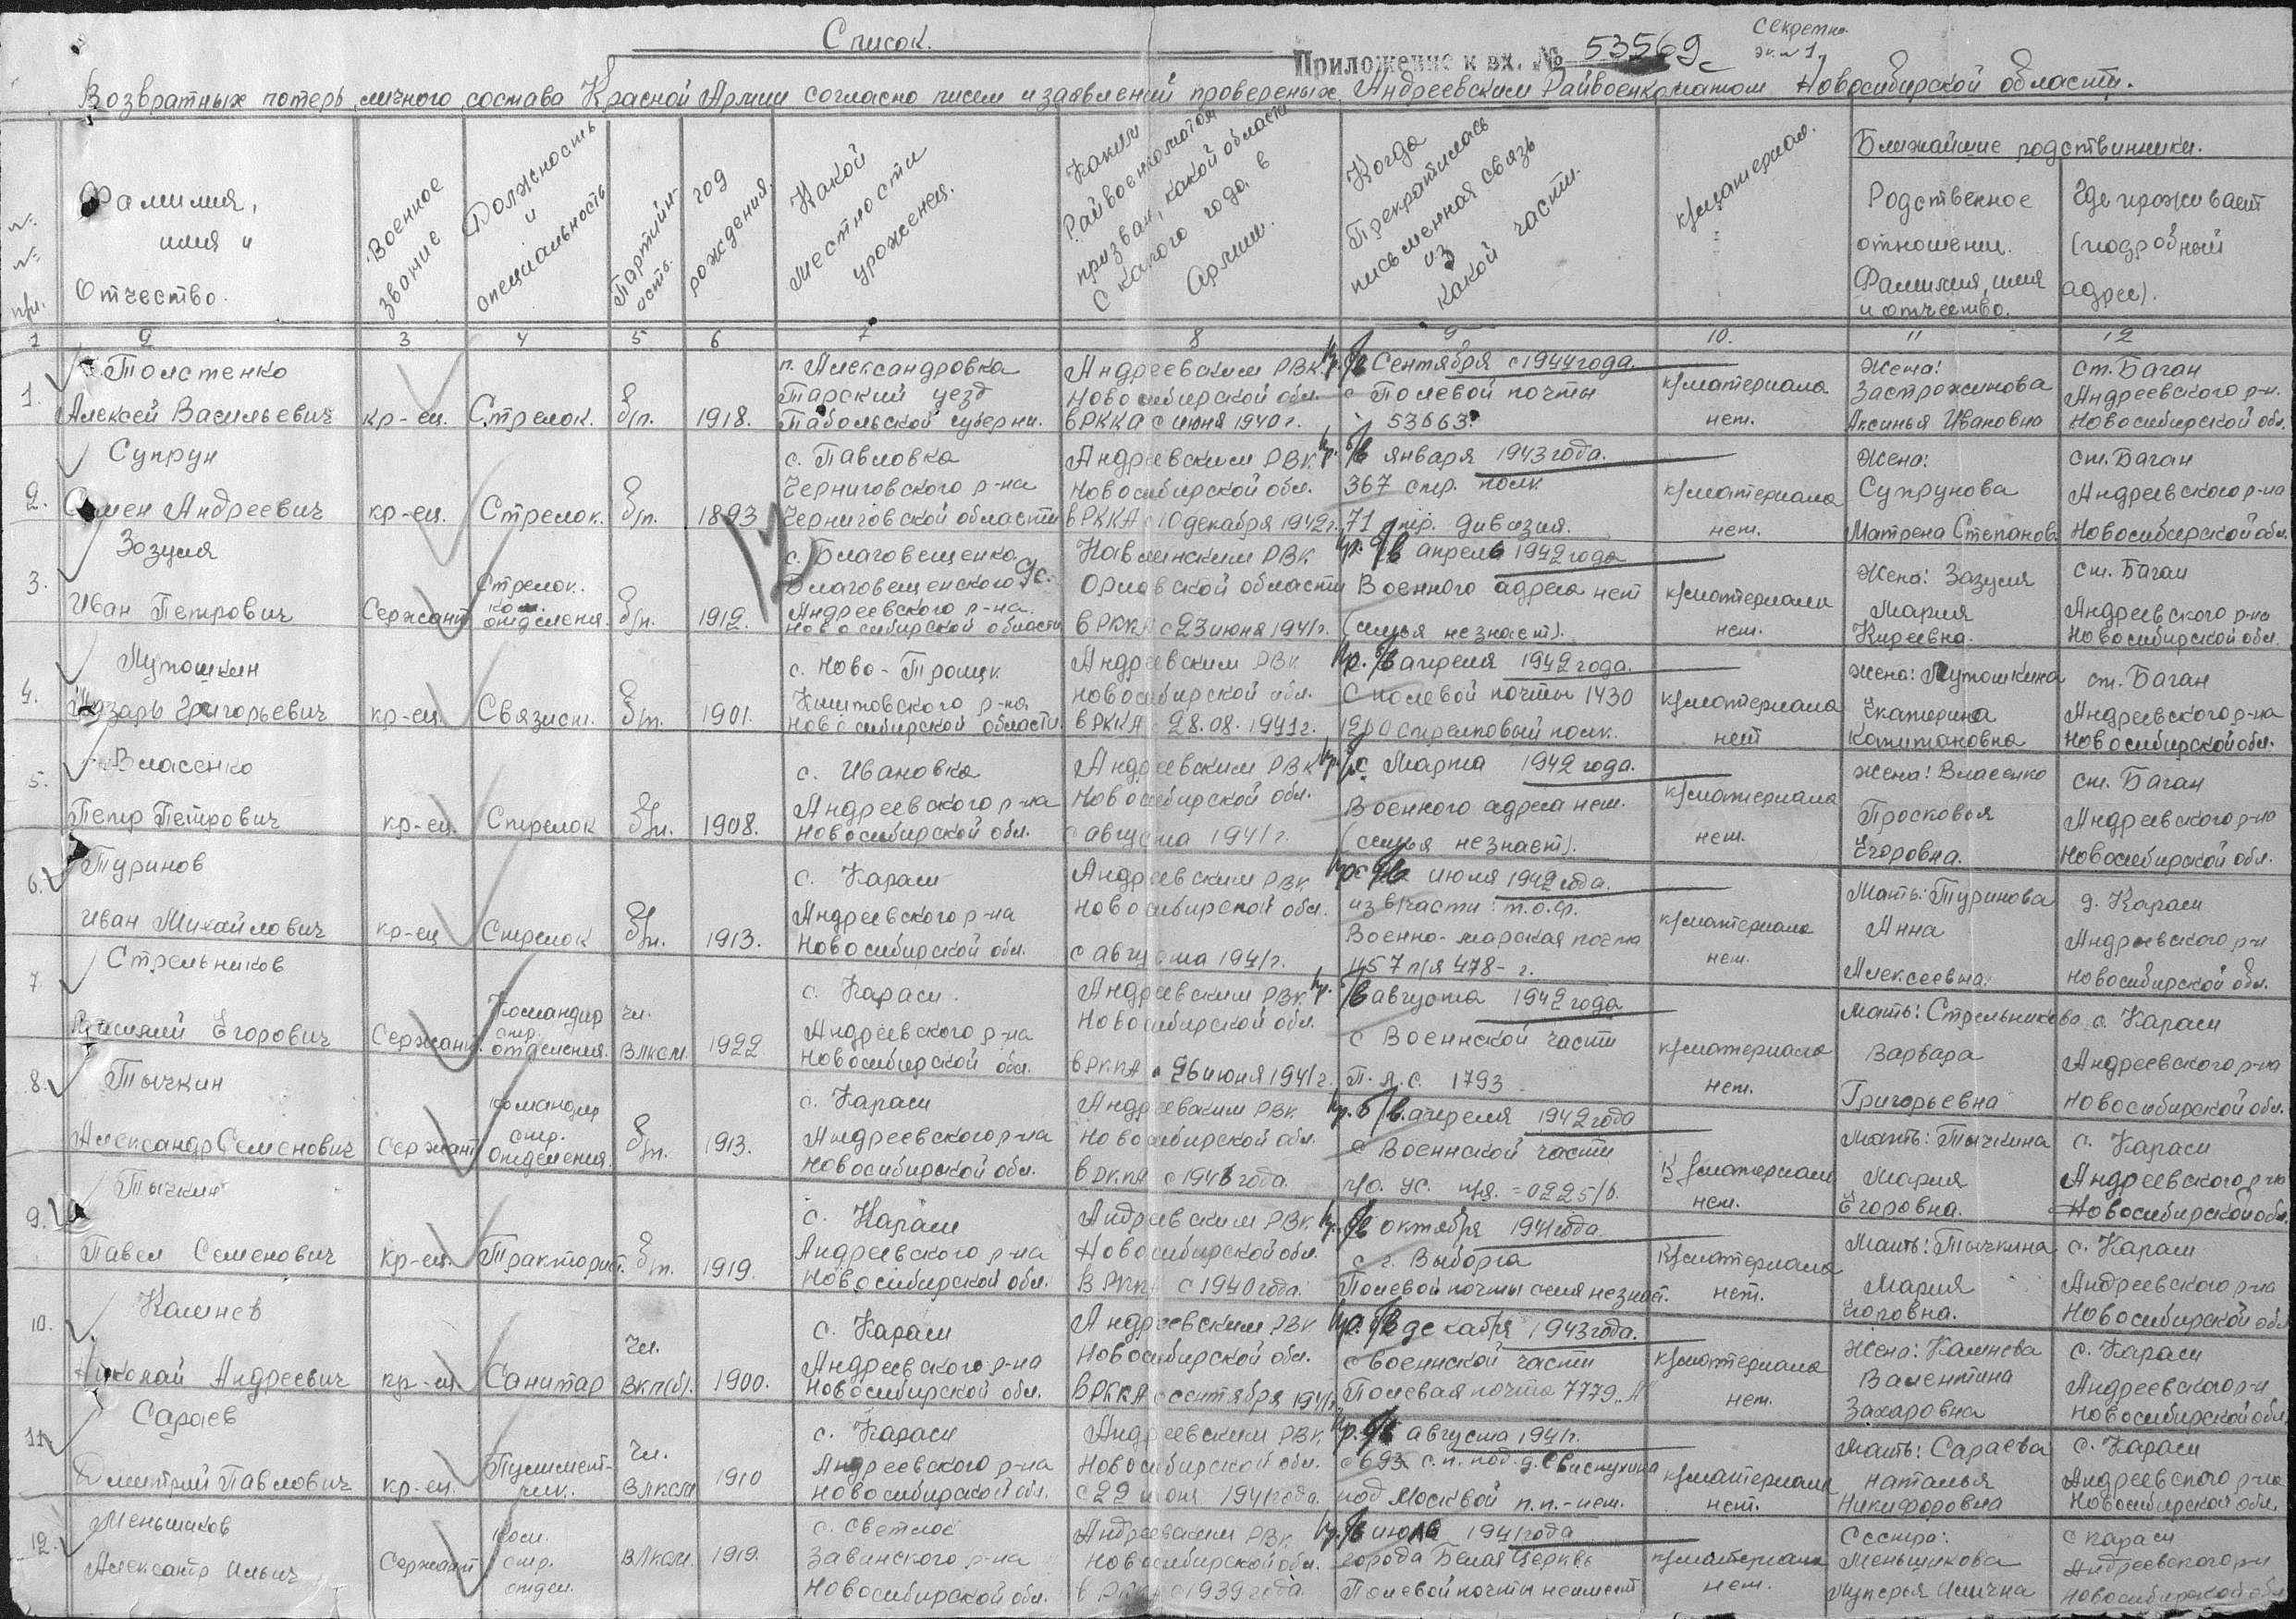 Список.
Приложение к вх. № 53569с
Секретно
экз. № 1
Возвратных потерь личного состава Красной Армии согласно писем и заявлений провереных Андреевским Райвоенкоматом Новосибирской области.
№ № п/п.
Фамилия, имя и Отчество.
Военное звание
Должность и специальность
Партийность.
год рождения.
Какой местности уроженец.
Каким Райвоенкоматом призван, какой области с какого года в Армии.
Когда Прекратилась письменная связь из какой части.
к/материал.
Ближайшие родственники.
Родственное отношение. Фамилия, имя и отчество.
Где проживает (подробный адрес).
1 2 3 4 5 6 7 8 9 10. 11 12
1. Толстенко
Алексей Васильевич
кр-ец. Стрелок. б/п. 1918.
п. Александровка
Тарский уезд
Табольской губерни.
Андреевским РВК
Новосибирской обл.
в РККА с июня 1940 г.
пр. б/в Сентября с 1944 года.
с Полевой почты
53663.
к/материала
нет.
Жена:
Застрожинова
Аксинья Ивановна
ст. Баган
Андреевского р-н.
Новосибирской обл.
2. Супрун
Семен Андреевич
кр-ец. Стрелок. б/п. 1893
с. Павловка
Черниговского р-на
Черниговской области
Андреевским РВК
Новосибирской обл.
в РККА с 10 декабря 1942 г.
пр. б/в января 1943 года.
367 стр. полк
71 стр. дивизия.
к/материала
нет.
Жена:
Супрунова
Матрена Степанов.
ст. Баган
Андреевского р-на
Новосибирской обл.
3. Зозуля
Иван Петрович
Сержант
Стрелок.
ком.
отделения.
б/п. 1912.
с. Благовещенка
Благовещенского с/с.
Андреевского р-на.
Новосибирской области
Навлинским РВК
Орловской области
в РККА с 23 июня 1941 г.
пр. б/в апреле 1942 года
Военного адреса нет
(семья незнает).
к/материала
нет.
Жена: Зазуля
Мария
Киреевна.
ст. Баган
Андреевского р-на
Новосибирской обл.
4. Лутошкин
Назарь Григорьевич
кр-ец. Связист. б/п. 1901.
с. Ново-Троицк
Кыштовского р-на
Новосибирской области
Андреевским РВК
Новосибирской обл.
в РККА с 28.08.1941 г.
пр. б/в апреля 1942 года.
С полевой почты 1430
1200 Стрелковый полк.
к/материала
нет
Жена: Лутошкина
Екатерина
Капитановна
ст. Баган
Андреевского р-на
Новосибирской обл.
5. Власенко
Петр Петрович
кр-ец. Стрелок б/п. 1908.
с. Ивановка
Андреевского р-на
Новосибирской обл.
Андреевским РВК
Новосибирской обл.
с августа 1941 г.
пр. б/в с Марта 1942 года.
Военного адреса нет.
(семья незнает).
к/материала
нет.
Жена: Власенко
Просковья
Егоровна.
ст. Баган
Андреевского р-на
Новосибирской обл.
6. Туринов
Иван Михайлович
кр-ец Стрелок б/п. 1913.
с. Караси
Андреевского р-на
Новосибирской обл.
Андреевским РВК
Новосибирской обл.
с августа 1941 г.
пр. б/в июля 1942 года.
из в/части: т.о.ф.
Военно-марская почта
1157 п/я 478-г.
к/материала
нет.
Мать: Туринова
Анна
Алексеевна.
д. Караси
Андреевского р-н
Новосибирской обл.
7. Стрельников
Василий Егорович
Сержант.
Командир
стр.
отделения.
чл.
ВЛКСМ. 1922
с. Караси.
Андреевского р-на
Новосибирской обл.
Андреевским РВК
Новосибирской обл.
в РККА с 26 июня 1941 г.
пр. б/в августа 1942 года
с Военнской части
П.п.с. 1793
к/материала
нет.
Мать: Стрельникова
Варвара
Григорьевна
с. Караси
Андреевского р-на
Новосибирской обл.
8. Тычкин
Александр Семенович
Сержант
Командир
стр.
отделения.
б/п. 1913.
с. Караси
Андреевского р-на
Новосибирской обл.
Андреевским РВК
Новосибирской обл.
в РККА с 1941 года.
пр. б/в. апреля 1942 года
с Военнской части
к/материала
нет.
Мать: Тычкина
Мария
Егоровна.
с. Караси
Андреевского р-на
Новосибирской обл.
9. Тычкин
Павел Семенович
кр-ец. Тракторист. б/п. 1919.
с. Караси
Андреевского р-на
Новосибирской обл.
Андреевским РВК
Новосибирской обл.
в РККА с 1940 года.
пр. б/в октября 1941 года.
с г. Выборга
Полевой почты семя незнает.
к/материала
нет.
Мать: Тычкина
Мария
Егоровна.
с. Караси
Андреевского р-на
Новосибирской обл
10. Калнев
Николай Андреевич
кр-ец. Санитар
чл.
ВКП(б). 1900.
с. Караси
Андреевского р-на
Новосибирской обл.
Андреевским РВК
Новосибирской обл.
в РККА с сентября 1941 г.
пр. б/в декабря 1943 года.
с военнской части
Полевая почта 7779 „А“
к/материала
нет.
Жена: Калнева
Валентина
Захаровна
с. Караси
Андреевского р-н
Новосибирской обл.
11. Сараев
Дмитрий Павлович
кр-ец.
Пулимет-
чик.
Чл.
ВЛКСМ 1910
с. Караси
Андреевского р-на
Новосибирской обл.
Андреевским РВК
Новосибирской обл.
с 22 июня 1941 года.
пр. б/в августа 1941 г.
с 693 с.п. под д. Свистухина
под Москвой п.п.-нет.
к/материала
нет.
Мать: Сараева
Наталья
Никифоровна
с. Караси
Андреевского р-на
Новосибирской обл.
12. Меньшиков
Александр Ильич
Сержант
ком.
стр.
отдел.
ВЛКСМ. 1919.
с. Светлое
Завинского р-на
Новосибирской обл.
Андреевским РВК
Новосибирской обл.
в РККА с 1939 года.
пр. б/в июль 1941 года
города Белая Церквь
Полевой почты неимеет
к/материала
нет.
Сестра:
Меньшикова
Лукерья Илична
с Караси
Андреевского р-н
Новосибирской обл